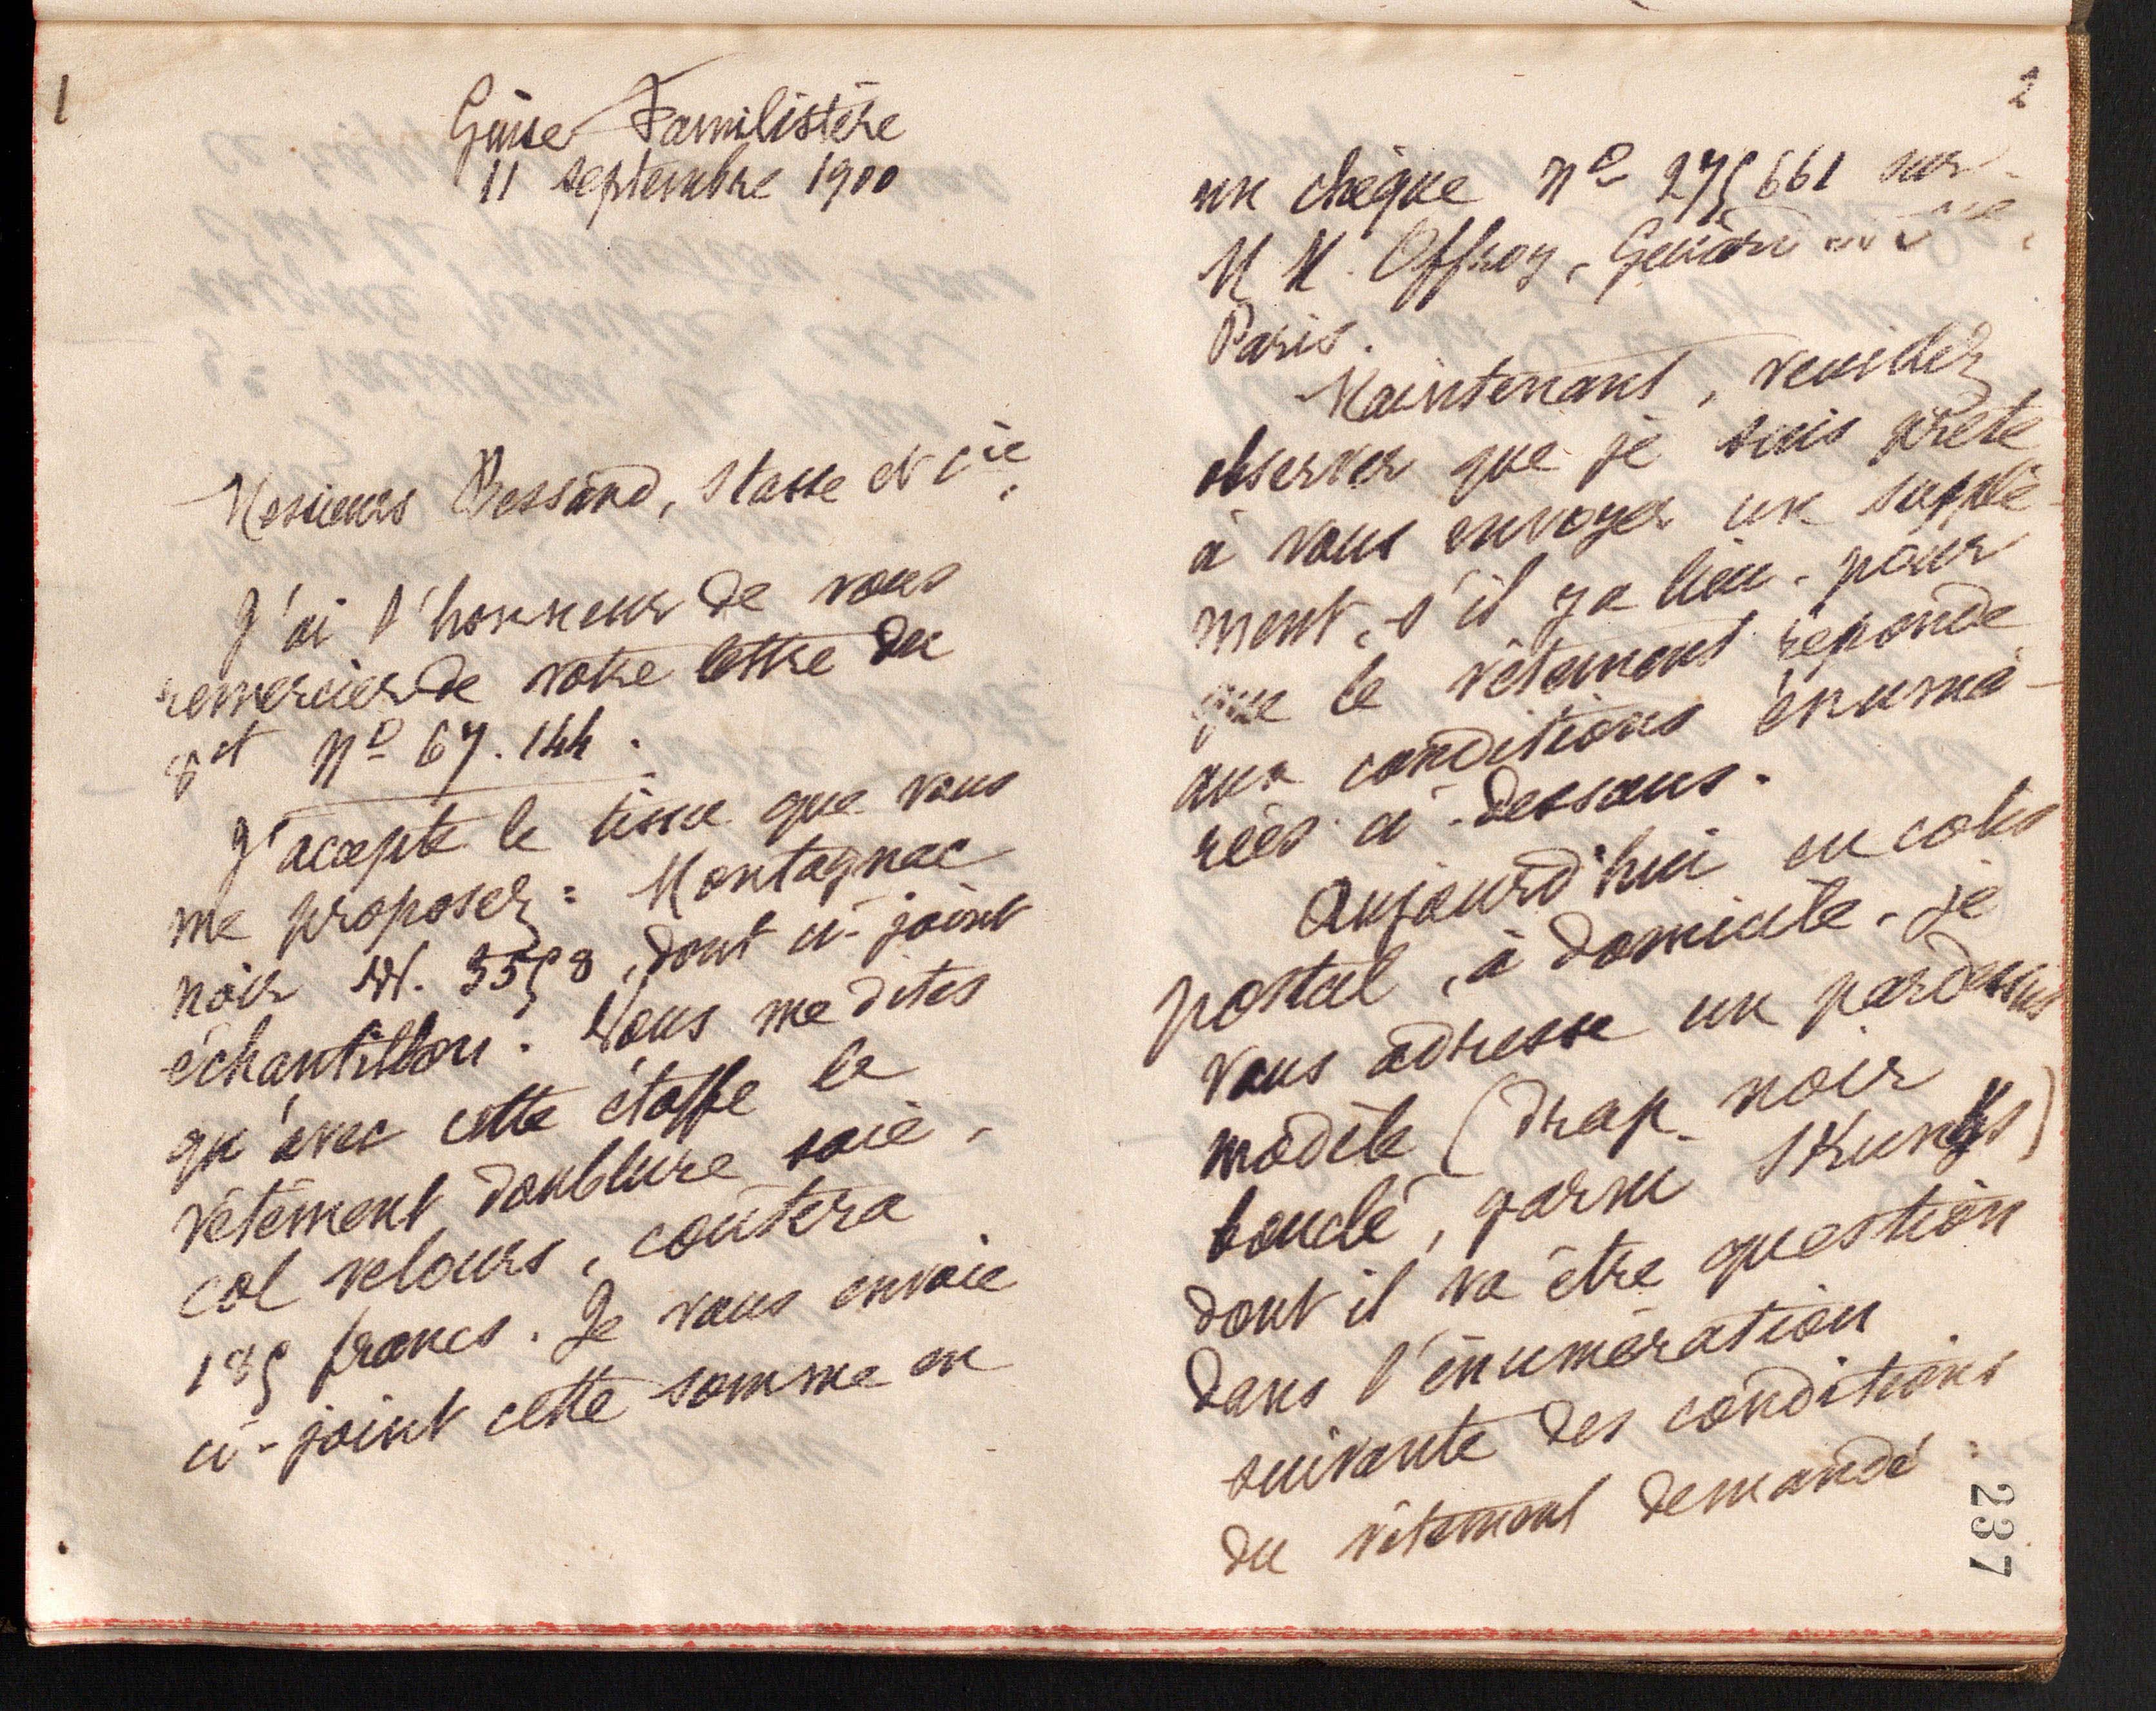 1
Guise Familistère
11 septembre 1900
Messieurs Bessand, Stasse et Cie,
J'ai l'honneur de vous
remercier de votre lettre du
8 ct Nº 67.144.
J'accepte le tissu que vous
me proposez : Montagnac
noir W. 3558, dont ci-joint
échantillon. Vous me dites
qu'avec cette étoffe le
vêtement doublure soie,
col velours, coûtera
185 francs. Je vous envoie
ci-joint cette somme en
2
un chèque Nº 275661 sur
M M. Offroy, Guiard et Cie
Paris.
Maintenant, veuillez
observer que je suis prête
à vous envoyer un supplé-
ment, s'il y a lieu, pour
que le vêtement réponde
aux conditions énumé-
rées ci-dessous.
Aujourd'hui en colis
postal, à domicile, je
vous adresse un pardessus
modèle (drap noir
bouclé, garni skungs)
dont il va être question
dans l'énumération
suivante des conditions
du vêtement demandé :
237